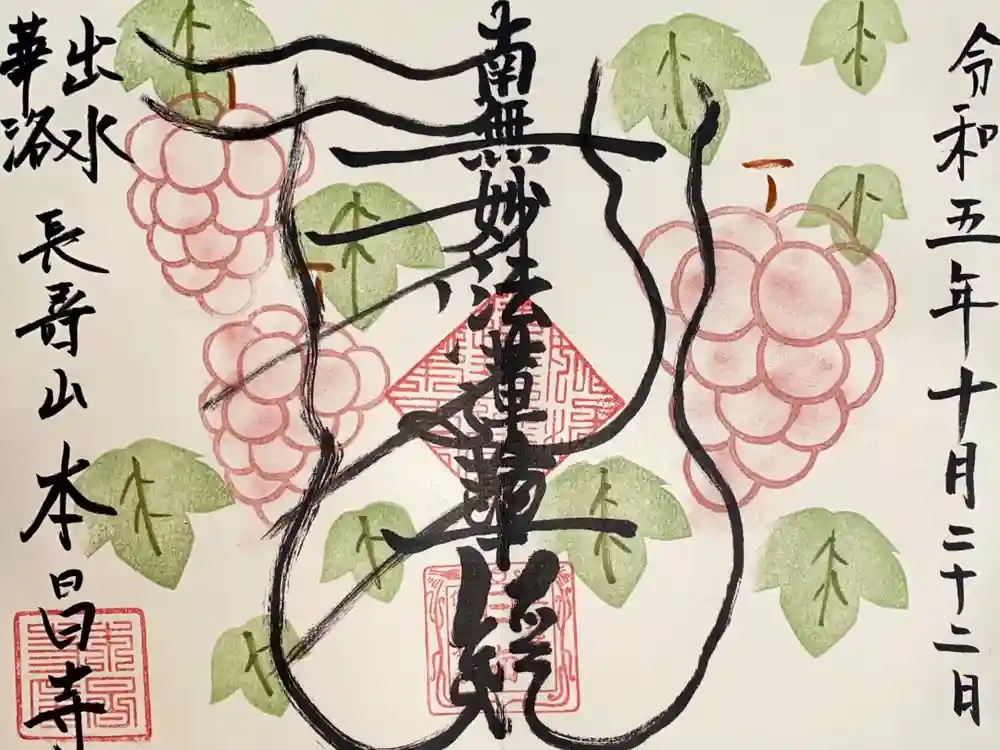 令和五年十月二十二日
南無妙法蓮華経
出水
華洛
長壽山 本昌寺